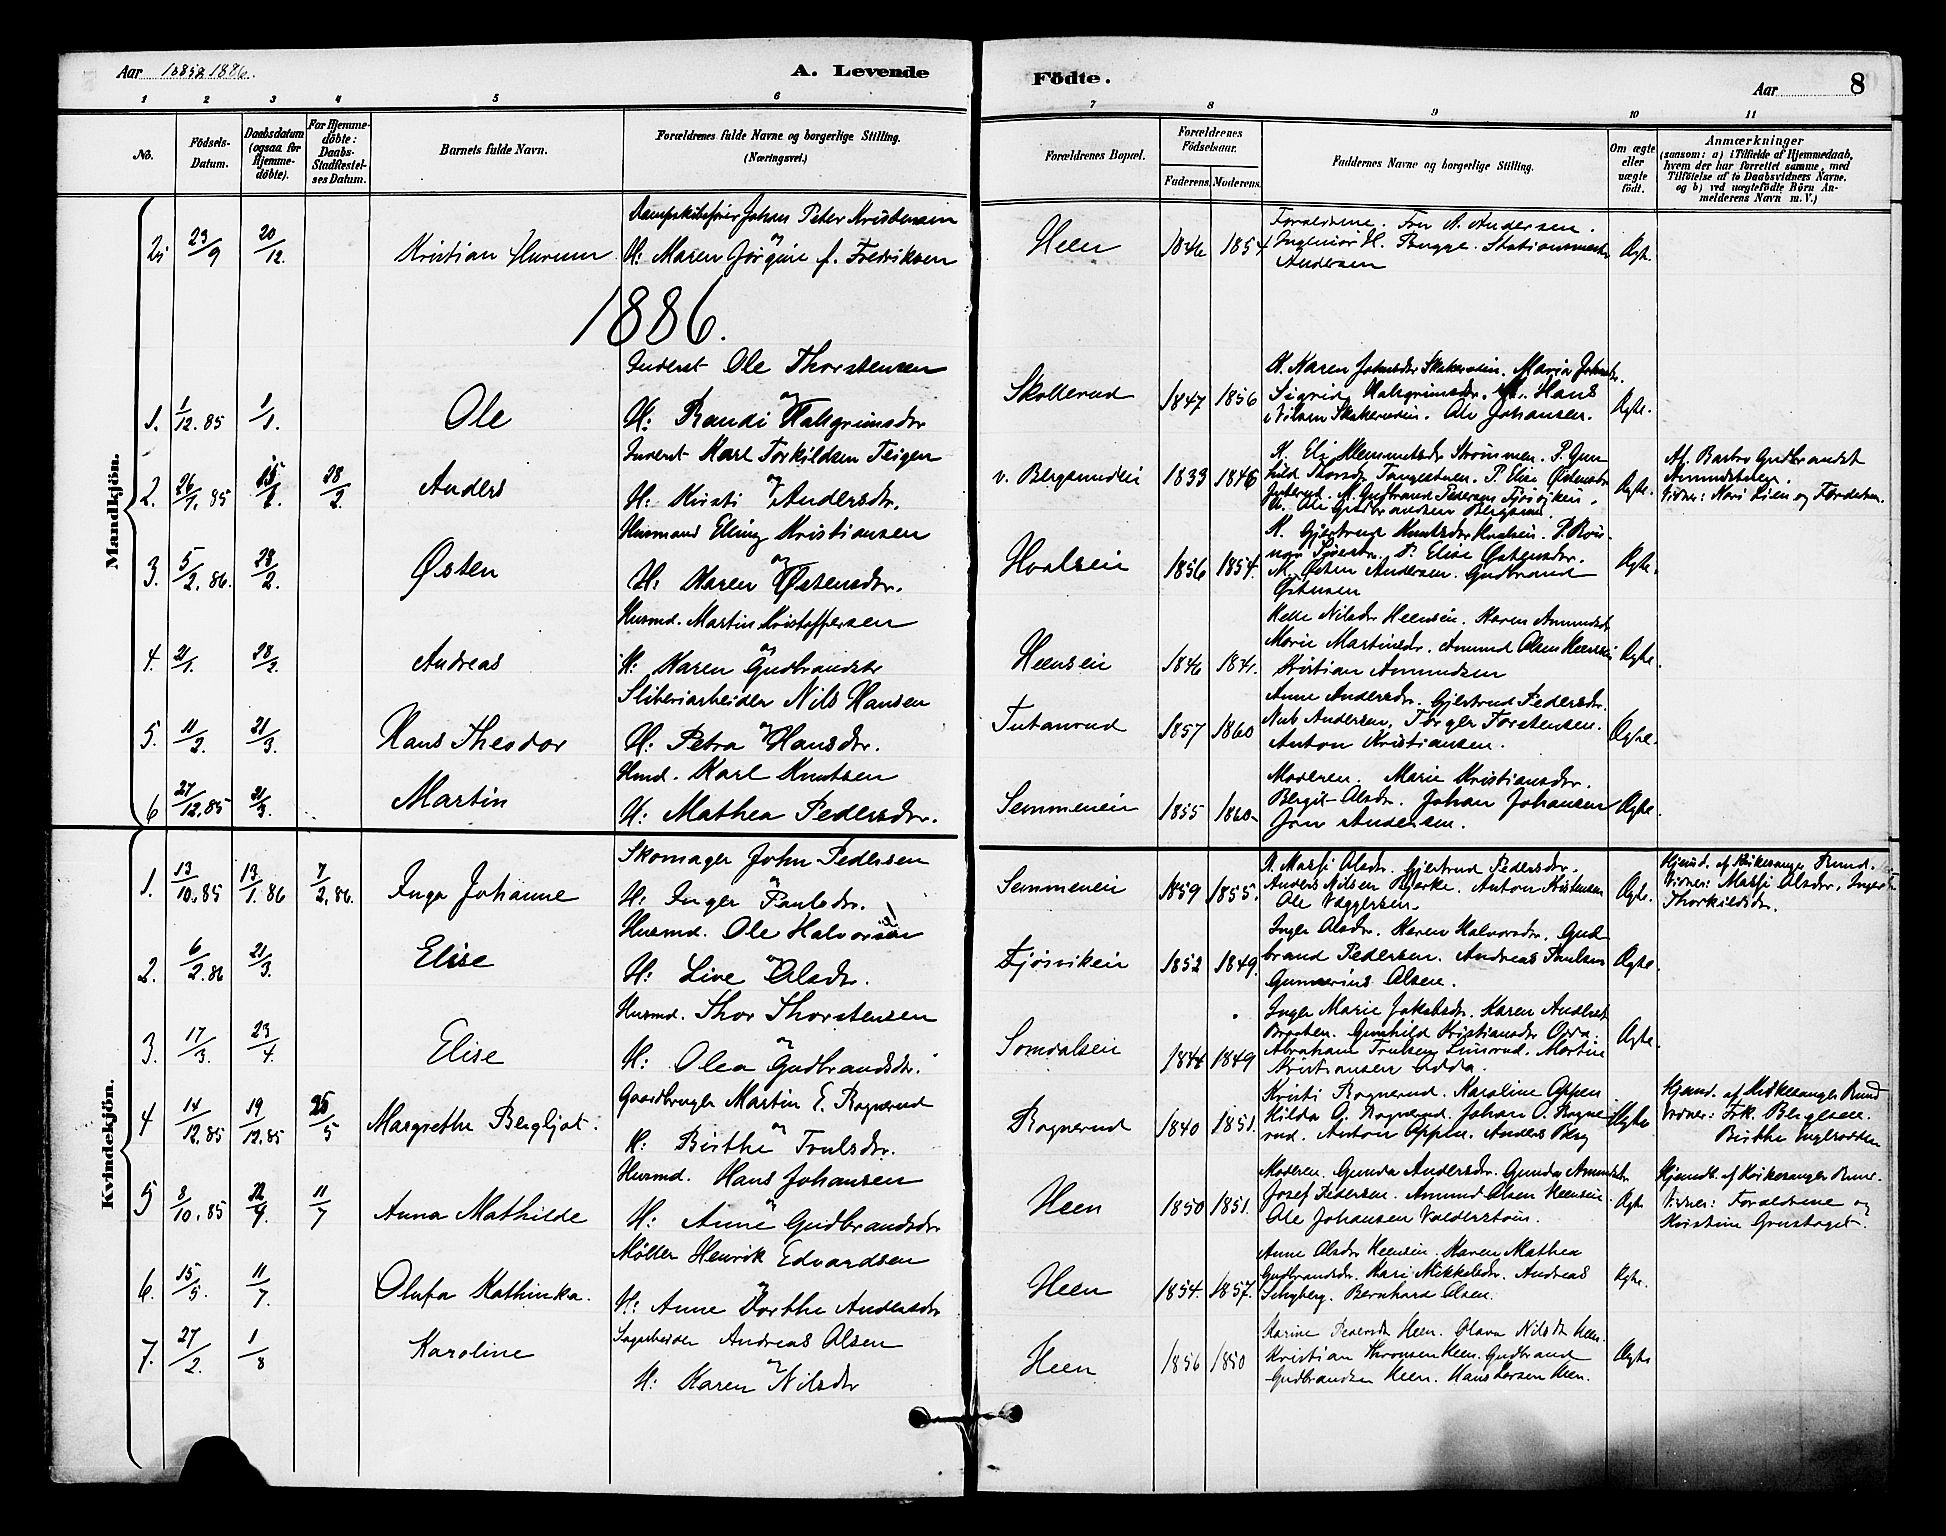 Aar 1885 & 1886.
A. Levende
Födte.
Aar
8
1 2 3 4 5 6 7 8 9 10 11
No.
Födsels-
Datum.
Daabsdatum
(ogsaa for
Hjemme-
döbte).
For Hjemme-
döbte:
Daabs-
Stadfæstel-
ses Datum.
Barnets fulde Navn.
Forældrenes fulde Navne og borgerlige Stilling.
(Næringsvei.)
Forældrenes Bopæl.
Forældrenes
Födselsaar.
Faderens. Moderens.
Faddernes Navne og borgerlige Stilling.
Om ægte
eller
uægte
födt.
Anmærkninger
(saasom: a) i Tilfælde af Hjemmedaab,
hvem der har forrettet samme, med
Tilföielse af to Daabsvidners Navne.
og b) ved uægtefödte Börn An-
melderens Navn m. V.)
Mandkjön.
23/9 20/12. Kristian Hurum
Dampskibsfører Johan Peter Kristensen
og
H: Maren Jørgine f. Fredriksen
Heen 1846 1854
Forældrene. Fru A. Andersen.
Ingeniør H. Bugge. Stationsmester
Andersen
Ægte.
1886.
1. 1/12.85 1/1. Ole
Inderst Ole Thorstensen
og
H: Randi Halsgrimsdtr
Skollerud 1847 1856
K. Karen Johnsdtr Skakersein. Maria Johnsdtr.
Sigrid Halsgrimsdtr. M. Hans
Nilsen Ole Johansen.
Ægte.
2. 26/1.85 28/2. Anders
Inderst Karl Torkildsen Teigen
og
H: Kirsti Andersdtr.
v. Bergsundei 1833 1845
K. Eli Klemmetsdtr Strømmen. P. Gun
hild Thorsdtr P. Elise Østensdtr
M. Gudbrand Pedersen Fjösviken.
U. Ole Gudbrandsen Bergsund.
Ægte.
Af. Barbro Gudbrandsdt
Vidner: Kari Lien og Forældrene.
3. 5/2.86. 28/2. Østen
Husmand Elling Kristiansen
og
H: Karen Østensdtr.
Hvalsein 1856 1854.
K. Gjertrud Knutsdtr Hvalsein. P. Rön-
P. Elise Østensdtr.
M. Østen Andersen. Gudbrand
Østensen
Ægte.
4. 21/1. 28/2. Andreas
Husmd. Martin Kristoffersen
og
H: Karen Gudbrandsdtr
Heensein 1846 1841.
Helle Nilsdtr Heensein. Karen Amundsdtr
Marie Martinsdtr. Amund Olsen Heensein
Kristian Amundsen
Ægte.
5. 11/2. 21/3. Hans Theodor
Sliberiarbeider Nils Hansen
og
H: Petra Hansdtr.
Tutanrud 1857 1860
Anne Andersdtr. Gjertrud Pedersdtr.
Nils Andersen. Torger Torstensen.
Anton Kristiansen.
Ægte.
6 27/12.85 21/3. Martin
Hmd. Karl Knutsen
H: Mathea Pedersdtr.
Semmenein 1855 1860.
Moderen. Marie Kristiansdtr.
Bergit Olsdtr. Johan Johansen
Jon Andersen.
Ægte.
Kvindekjön.
1. 13/10.85 13/1.86 7/2.86. Inga Johanne
Skomager John Pedersen
og
H: Inger Paulsdtr.
Semmenein 1859 1855.
K. Massi Olsdtr. Gjertrud Pedersdtr.
Anders Nilsen Bjerke. Anton Kristensen
Ole Væggersen.
Ægte.
Hjemd. af Kirkesanger Rund.
Vidner: Massi Olsdtr, Inger
Thorkildsdtr.
2. 6/2.86 21/3. Elise
Husmd. Ole Halvorsen
og
H: Live Olsdtr.
Fjösvikein 1852 1849.
Inger Olsdtr. Karen Halvorsdtr. Gud
brand Pedersen. Andreas Paulsen
Gunnerius Olsen.
Ægte.
3. 17/3. 23/4. Elise
Husmd. Thor Thorstensen
og
H: Olea Gudbrandsdtr.
Somdalsein 1844 1849
Inger Marie Jakobsdtr. Karen Andersdt
Braaten. Gunhild Kristiansdtr Odda.
Abraham Trulsen Linsrud. Martin
Kristiansen Odda.
Ægte.
4 14/12.85 19/12.85 25/5 Margrethe Bergljot.
Gaardbruger Martin E. Rognerud
og
H: Birthe Trulsdtr.
Rognerud 1840 1851.
Kristi Rognerud. Karoline Oppen
Hilda O. Rognerud. Johan O. Rogne
rud. Anton Oppen. Anders Berg
Ægte
Hjemd. af Kirkesanger Rund
Vidner: Frk. Bergesen.
Birthe
5 8/10.85 11/7 Anna Mathilde
Husmd. Hans Johansen
og
H: Anne Gudbrandsdtr
Heen 1850 1851.
Moderen. Gunda Andersdtr. Gunda Amundsdtr
Josef Pedersen. Amund Olsen Heensein.
Ole Johansen
Ægte
Hjemdt. af Kirkesanger Rund.
Vidner: Forældrene og
Kristine
6. 15/5. 11/7. Olufa Kathinka.
Møller Henrik Edvardsen
og
H: Anne Dorthe Andersdtr
Heen 1854. 1857.
Anne Olsdtr Heensein. Karen Mathea
Gudbrandsdtr. Kari Mikkelsdtr. Andreas
Schyberg. Bernhard Olsen.
Ægte.
7. 27/2. 1/8 Karoline
Sagarbeider Andreas Olsen
og
H: Karen Nilsdtr
Heen 1856 1850
Karine Pedersdt Heen. Olava Nilsdt Heen.
Kristian Thronsen Heen. Gudbrand
Gudbrandsen Heen. Hans Larsen Heen.
Ægte